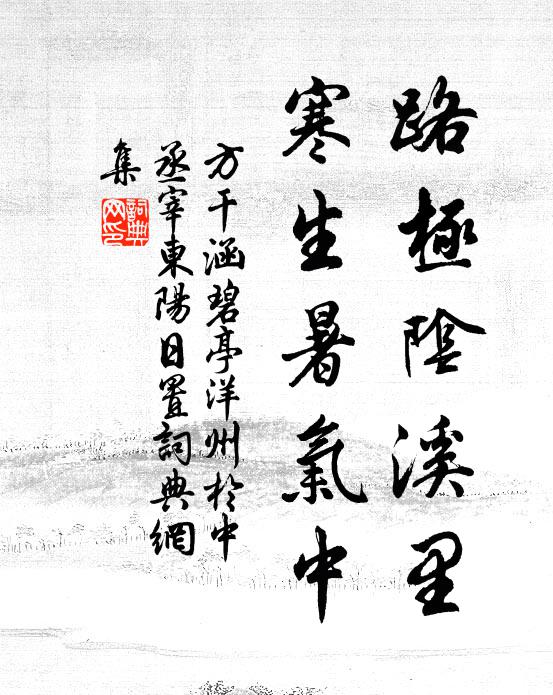 路極陰溪里
寒生暑氣中
方干涵碧亭洋州於中
丞宰東陽日置詞典網
集
詞典
网印